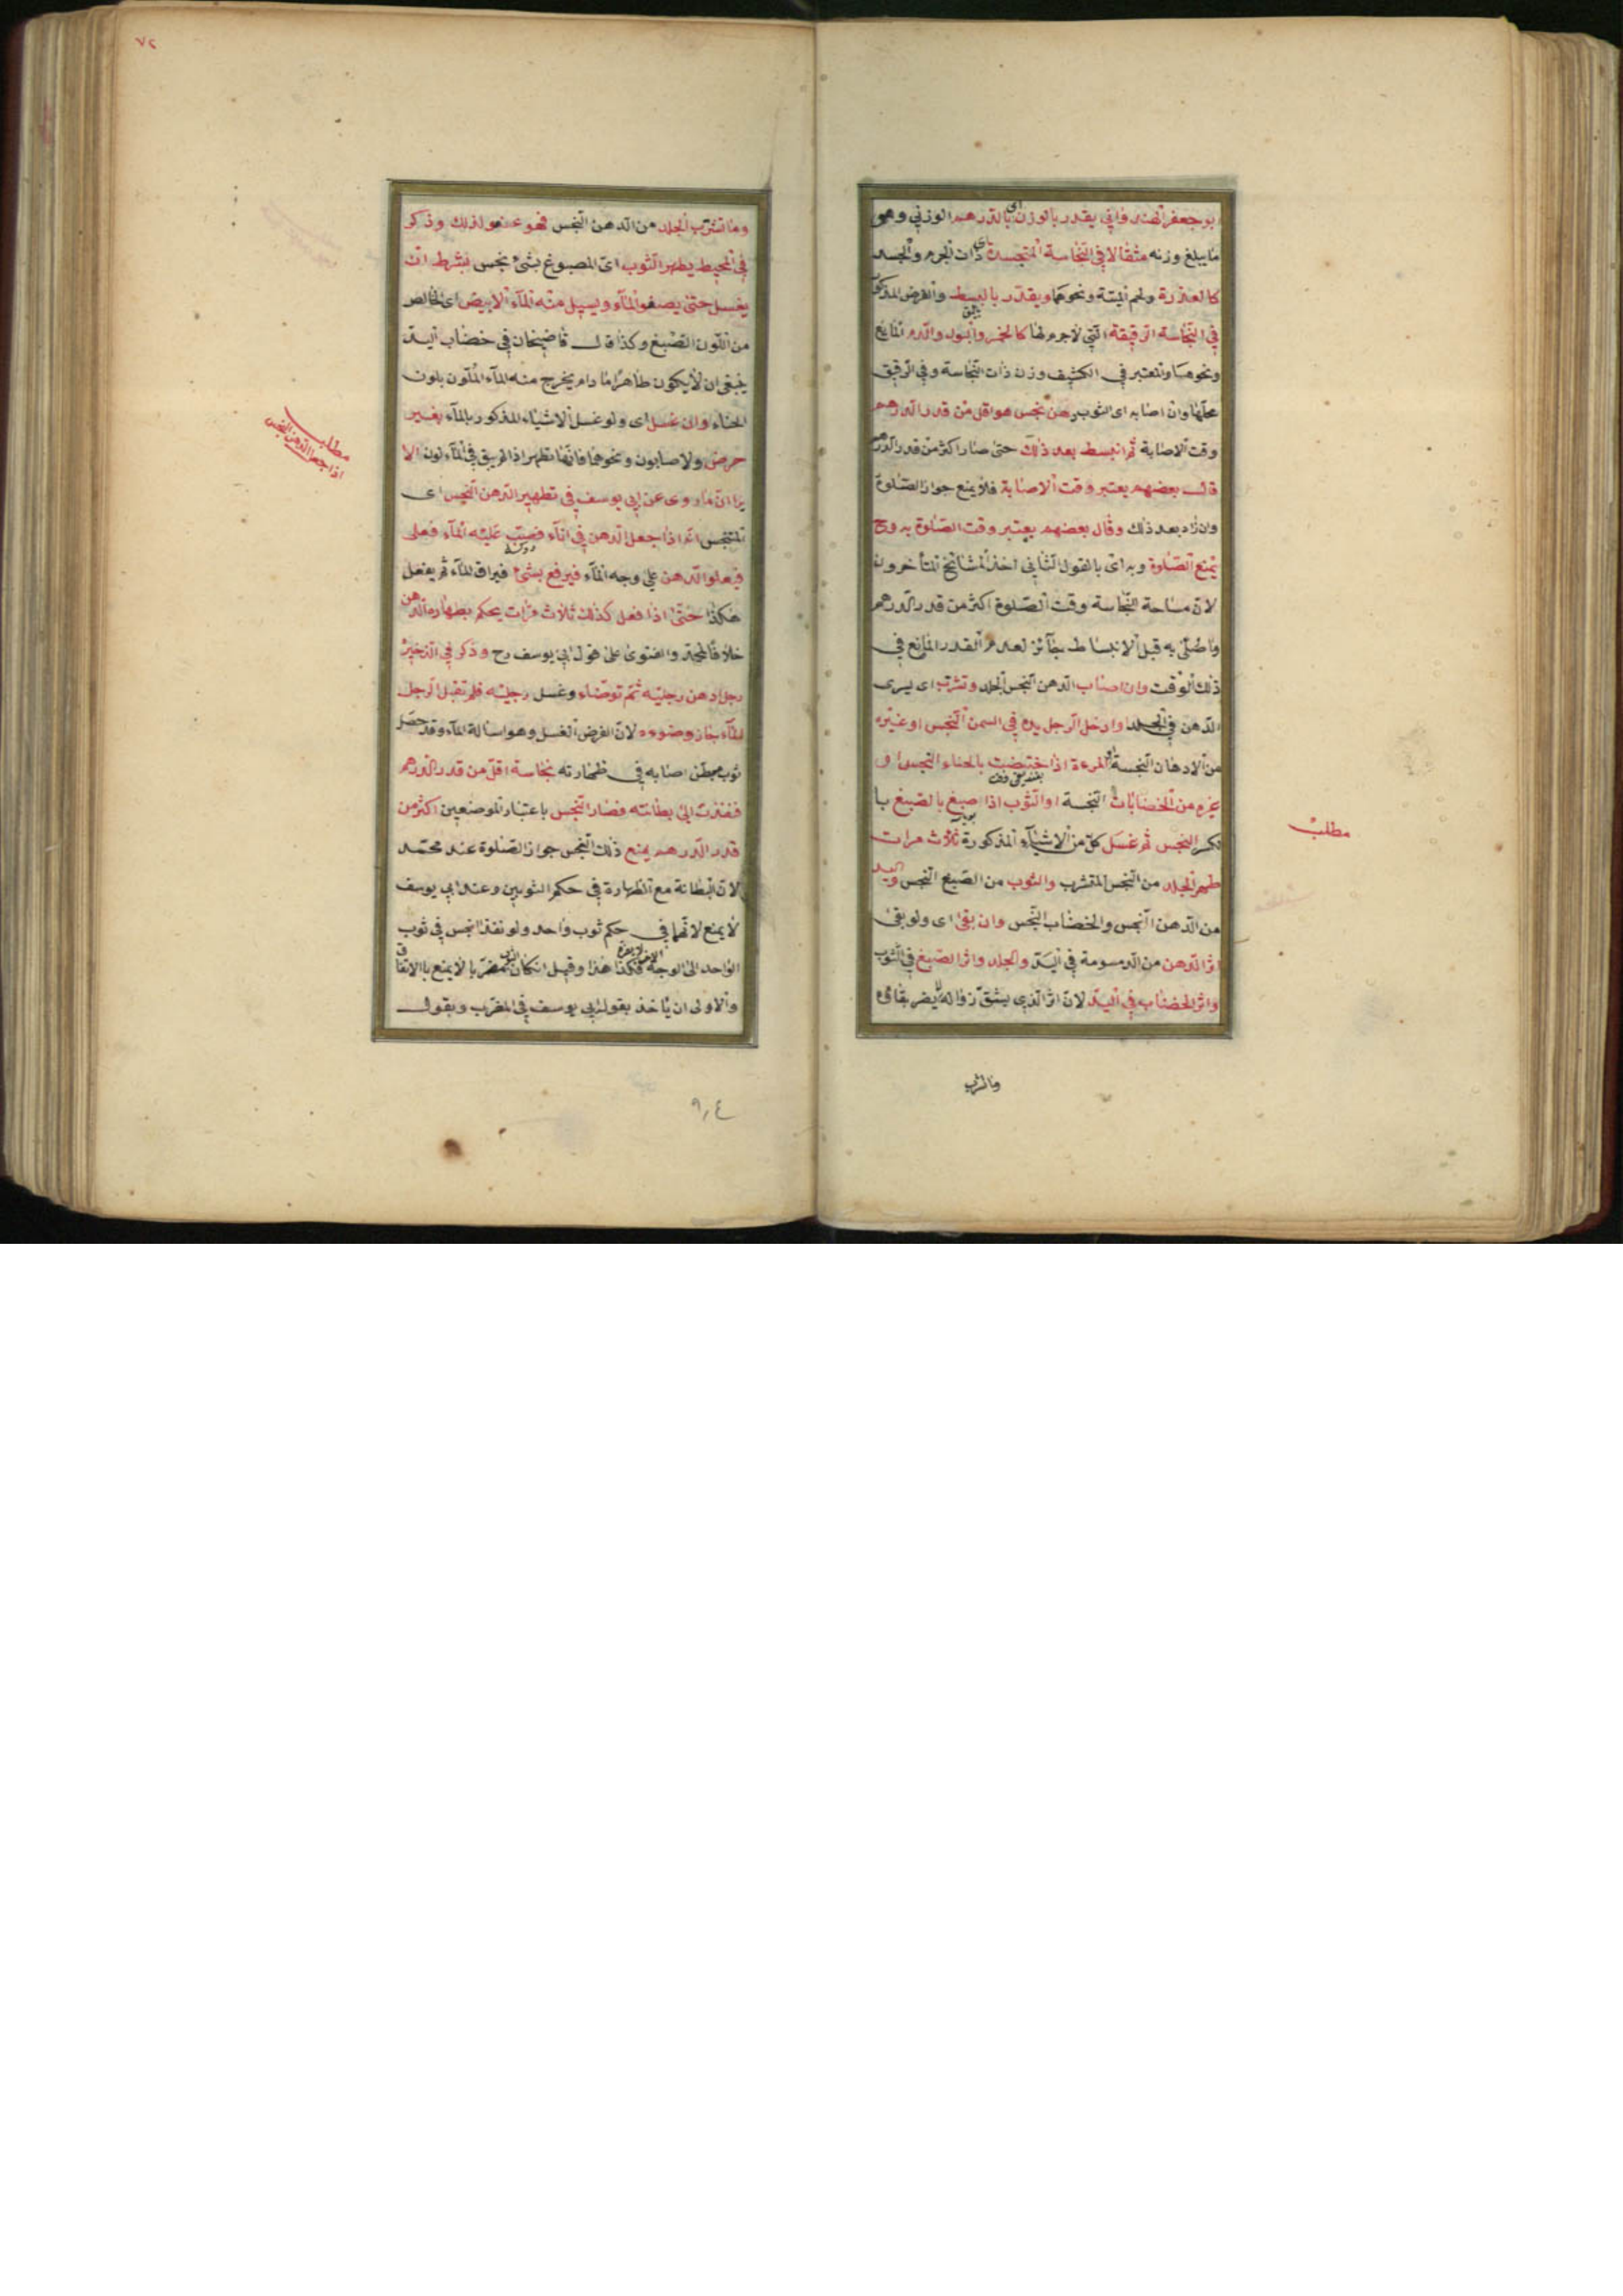 ابو جعفر الهندوانى يقدر بالوزن اى بالدرهم الوزنى وهو
ما يبلغ وزنه مثقالا فى النجاسة المتجسدة اى ذات الجرم والجسد
كالعذرة ولحم الميتة ونحوهما ويقدر بالبسط والعرض المذكور
فى النجاسة الرقيقة التى لا جرم لها كالخمر والبول والدم المايع
ونحوها والمعتبر فى الكثيف وزن ذات النجاسة وفى الرقيق
محلها وان اصابه اى الثوب دهن نجس هو اقل من قدر الدرهم
وقت الاصابة ثم انبسط بعد ذلك حتى صار اكثر من قدر الدرهم
قال بعضهم يعتبر وقت الاصابة فلا يمنع جواز الصلوة
وان زاد بعد ذلك وقال بعضهم يعتبر وقت الصلوة به وح
يمنع الصلوة وبه اى بالقول الثانى اخذ المشائخ المتأخرون
لان مساحة النجاسة وقت الصلوة اكثر من قدر الدرهم
وما صلى به قبل الانبساط جآئز لعدم القدر المانع فى
ذلك الوقت وان اصاب الدهن النجس الجلد وتشرب اى يسرى
الدهن فى الجلد او ادخل الرجل يده فى السمن النجس او غيره
من الادهان النجسة او المرءة اذا اختضبت بالحناء النجس او
غيره من الخضابات النجسة او الثوب اذا اصبغ بالصبغ با
لكسر النجس ثم غسل كل من الاشيآء المذكورة ثلاث مرات
طهر الجلد من النجس المتشرب والثوب من الصبغ النجس واليد
من الدهن النجس والخضاب النجس وان بقى اى ولو بقى
اثر الدهن من الدسومة فى اليد والجلد واثر الصبغ فى الثوب
واثر الخضاب فى اليد لان اثر الذى يشق زواله لا يضر بقاؤه
مطلب
وما تشرب
٧٢
وما تشرب الجلد من الدهن النجس فهو عفو لذلك وذكر
فى المحيط يطهر الثوب اى المصبوغ بشئ نجس بشرط ان
يغسل حتى يصفو المآء ويسيل منه المآء الابيض اى الخالص
من اللون الصبغ وكذا قال قاضيخان فى خضاب اليد
ينبغى ان لا يكون طاهرا ما دام يخرج منه المآء الملون بلون
الحناء وان غسل اى ولو غسل الاشياء المذكور بالمآء بغير
حرض ولا صابون ونحوهما فانها تطهر اذ الريق فى المآء لون الا
يرا ان ما روى عن ابى يوسف فى تطهير الدهن النجس اى
المتنجس انه اذا جعل الدهن فى انآء فصب عليه المآء فعلى
فيعلو الدهن على وجه المآء فيرفع بشئ فيراق المآء ثم يفعل
هكذا حتى اذا فعل كذلك ثلاث مرات يحكم بطهارة الدهن
خلافا لمحمد والفتوى على قول ابى يوسف رح وذكر فى الذخيره
رجل ادهن رجليه ثم توضاء وغسل رجليه فلم تقبل الرجل
المآء جاز وضوءه لان الفرض الغسل وهو اسالة المآء وقد حصل
ثوب مبطن اصابه فى ظهارته نجاسة اقل من قدر الدرهم
فنفذت الى بطانته فصار النجس باعتبار الموضعين اكثر من
قدر الدرهم يمنع ذلك النجس جواز الصلوة عند محمد
لان البطانة مع الظهارة فى حكم الثوبين وعند ابى يوسف
لا يمنع لانهما فى حكم ثوب واحد ولو نفذ النجس فى ثوب
الواحد الى الوجه فكذا هذا وقيل ان كان مضربا لا يمنع بالاتفاق
والاولى ان يأخذ بقول ابى يوسف فى المضرب وبقول
مطلب
اذا جعل الدهن النجس